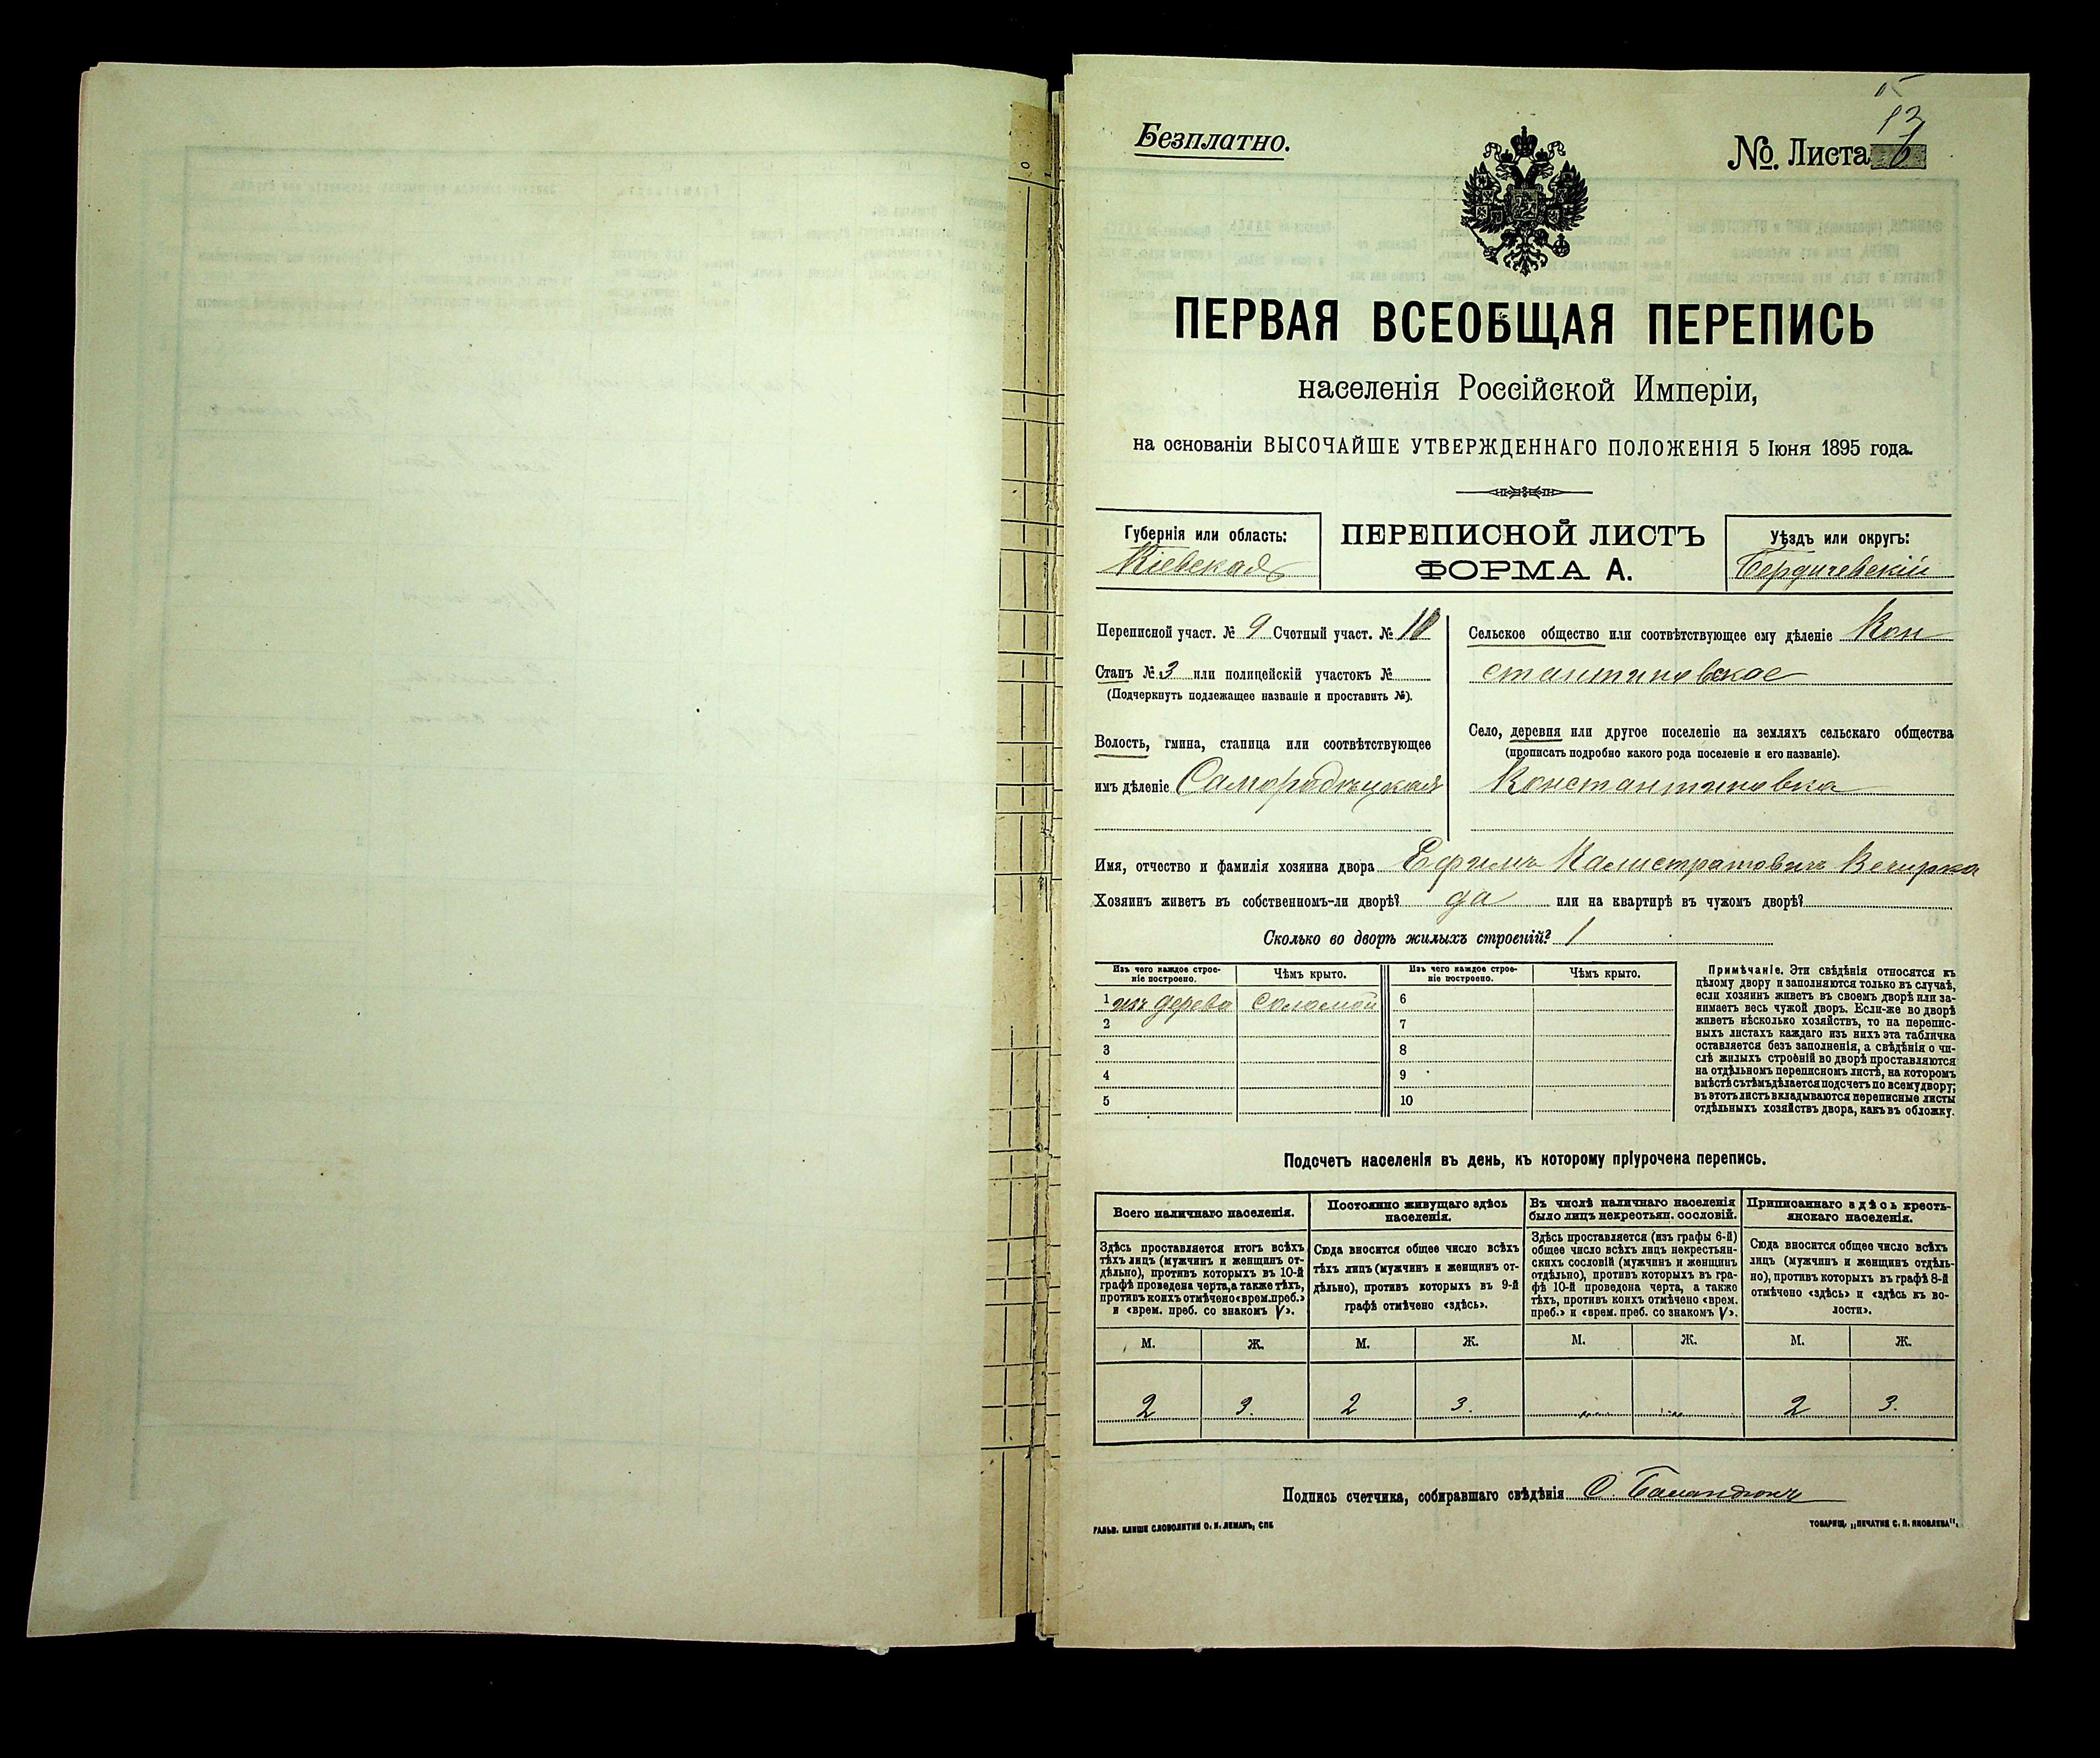 Безплатно.
№. Листа
ПЕРВАЯ ВСЕОБЩАЯ ПЕРЕПИСЬ
населенія Россійской Имперіи,
на основаніи ВЫСОЧАЙШЕ УТВЕРЖДЕННАГО ПОЛОЖЕНІЯ 5 Іюня 1895 года.
Губернія или область:
Кіевская
ПЕРЕПИСНОЙ ЛИСТЪ
ФОРМА А.
Уѣздъ или округъ:
Бердичевскій
Переписной участ. № 9 Счетный участ. № 10
Станъ № 3 или полицейскій участокъ №
(Подчеркнуть подлежащее названіе и проставить №).
Волость, гмина, станица или соотвѣтствующее
имъ дѣленіе Самородецкая
Сельское общество или соотвѣтствующее ему дѣленіе Кон
стантиновское
Село, деревня или другое поселеніе на земляхъ сельскаго общества
(прописать подробно какого рода поселеніе и его названіе).
Константиновка
Имя, отчество и фамилія хозяина двора Ефимъ Калистратовичъ Вечирка
Хозяинъ живетъ въ собственномъ-ли дворѣ? да или на квартирѣ въ чужомъ дворѣ?
Сколько во дворѣ жилыхъ строеній? 1
Изъ чего каждое строе-
ніе построено.
Чѣмъ крыто.
Изъ чего каждое строе-
ніе построено.
Чѣмъ крыто.
1 изъ дерева соломой 6
2 7
3 8
4 9
5 10
Примѣчаніе. Эти свѣдѣнія относятся къ
цѣлому двору и заполняются только въ случаѣ,
если хозяинъ живетъ въ своемъ дворѣ или за-
нимаетъ весь чужой дворъ. Если-же во дворѣ
живетъ нѣсколько хозяйствъ, то на перепис-
ныхъ листахъ каждаго изъ нихъ эта табличка
оставляется безъ заполненія, а свѣдѣнія о чи-
слѣ жилыхъ строеній во дворѣ проставляются
на отдѣльномъ переписномъ листѣ, на которомъ
вмѣстѣ съ тѣмъ дѣлается подсчетъ по всему двору;
въ этотъ листъ вкладываются переписные листы
отдѣльныхъ хозяйствъ двора, какъ въ обложку.
Подсчетъ населенія въ день, къ которому пріурочена перепись.
Всего наличнаго населенія.
Здѣсь проставляется итогъ всѣхъ
тѣхъ лицъ (мужчинъ и женщинъ от-
дѣльно), противъ которыхъ въ 10-й
графѣ проведена черта, а также тѣхъ,
противъ коихъ отмѣчено «врем. преб.»
и «врем. преб. со знакомъ V».
М. Ж.
2 3.
Постоянно живущаго здѣсь
населенія.
Сюда вносится общее число всѣхъ
тѣхъ лицъ (мужчинъ и женщинъ от-
дѣльно), противъ которыхъ въ 9-й
графѣ отмѣчено «здѣсь».
М. Ж.
2 3.
Въ числѣ наличнаго населенія
было лицъ некрестьян. сословій.
Здѣсь проставляется (изъ графы 6-й)
общее число всѣхъ лицъ некрестьян-
скихъ сословій (мужчинъ и женщинъ
отдѣльно), противъ которыхъ въ гра-
фѣ 10-й проведена черта, а также
тѣхъ, противъ коихъ отмѣчено «врем.
преб.» и «врем. преб. со знакомъ V».
М. Ж.
Приписаннаго здѣсь кресть-
янскаго населенія.
Сюда вносится общее число всѣхъ
лицъ (мужчинъ и женщинъ отдѣль-
но), противъ которыхъ въ графѣ 8-й
отмѣчено «здѣсь» и «здѣсь къ во-
лости».
М. Ж.
2 3.
Подпись счетчика, собиравшаго свѣдѣнія
ГАЛЬВ. КЛИШЕ СЛОВОЛИТНИ О. И. ЛЕМАНЪ, СПБ.
ТОВАРИЩ. „ПЕЧАТНЯ С. П. ЯКОВЛЕВА".